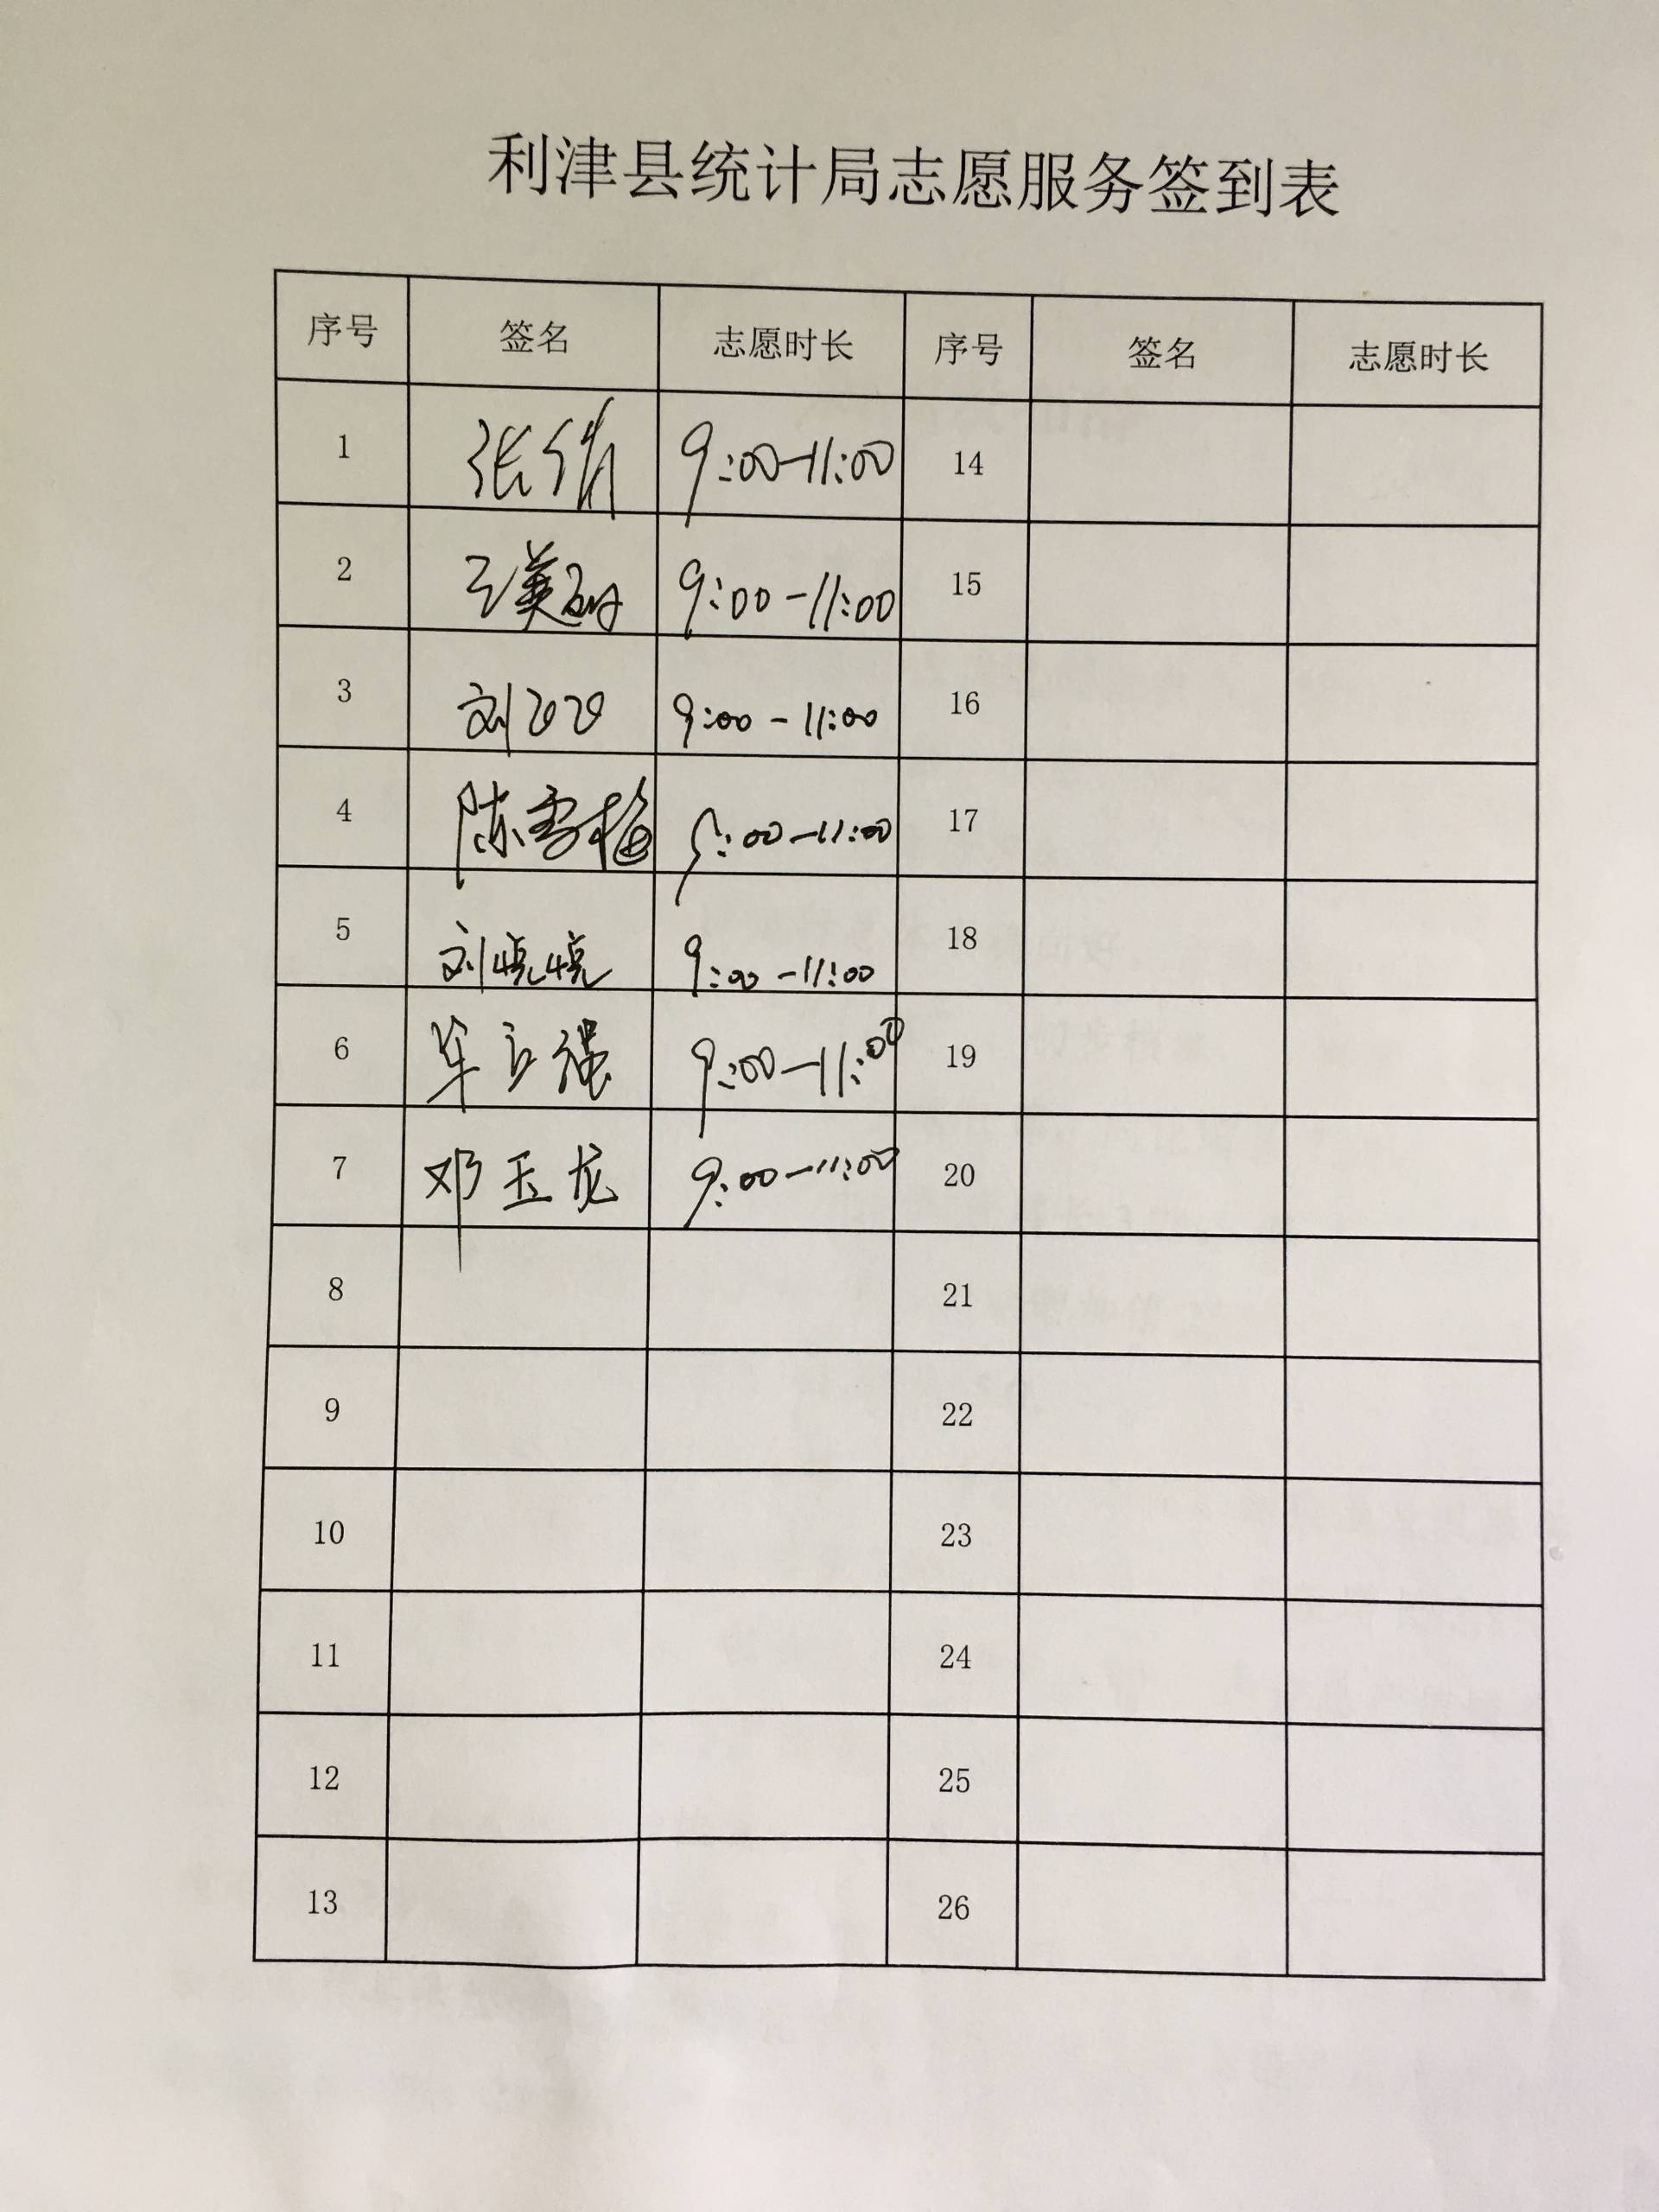 利津县统计局志愿服务签到表
序号 签名 志愿时长 序号 签名 志愿时长
1 张倩 9:00-11:00 14
2 王美 9:00-11:00 15
3 刘 9:00-11:00 16
4 陈雪梅 9:00-11:00 17
5 刘晓晓 9:00-11:00 18
6 立强 9:00-11:00 19
7 邓玉龙 9:00-11:00 20
8 21
9 22
10 23
11 24
12 25
13 26